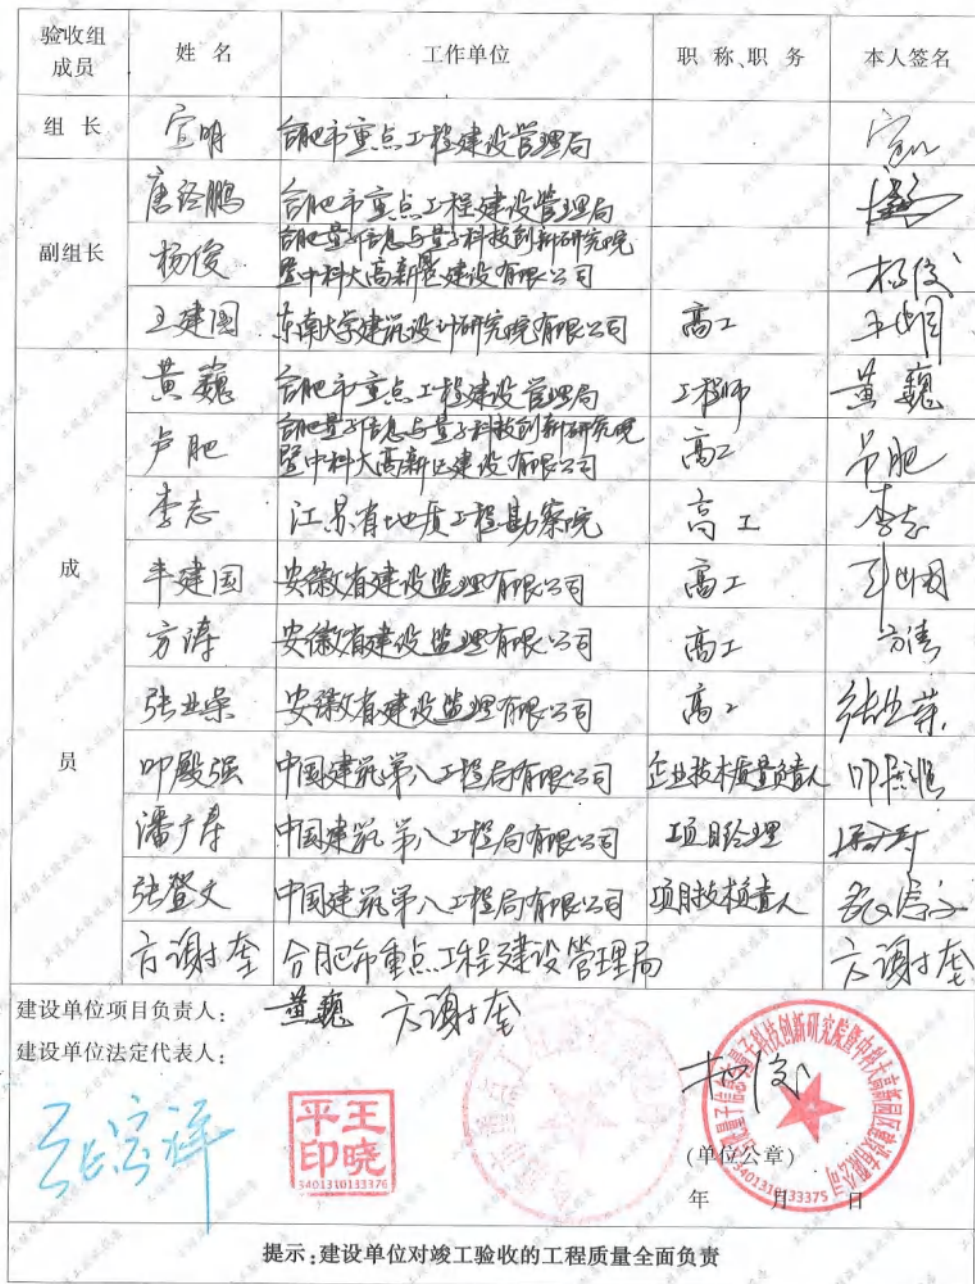 验收组成员 姓 名 工作单位 职 称、职 务 本人签名
组 长 宣明 合肥市重点工程建设管理局
副组长
唐经鹏 合肥市重点工程建设管理局
杨俊 合肥量子信息与量子科技创新研究院
暨中科大高新区建设有限公司 杨俊
王建国 东南大学建筑设计研究院有限公司 高工
成 员
黄巍 合肥市重点工程建设管理局 工程师 黄巍
卢肥 合肥量子信息与量子科技创新研究院
暨中科大高新区建设有限公司 高工
李志 江苏省地质工程勘察院 高工 李志
建国 安徽省建设监理有限公司 高工
方涛 安徽省建设监理有限公司 高工
张业荣 安徽省建设监理有限公司 高工 张业荣
叩殿强 中国建筑第八工程局有限公司 企业技术质量负责人
潘广寿 中国建筑第八工程局有限公司 项目经理
张登文 中国建筑第八工程局有限公司 项目技术负责人
方谢奎 合肥市重点工程建设管理局 方谢奎
建设单位项目负责人: 黄巍 方谢奎
建设单位法定代表人:
杨俊
王晓平印
3401310133376
合肥量子信息与量子科技创新研究院暨中科大高新园区建设有限公司
3401310133375
(单位公章)
年 月 日
提示:建设单位对竣工验收的工程质量全面负责